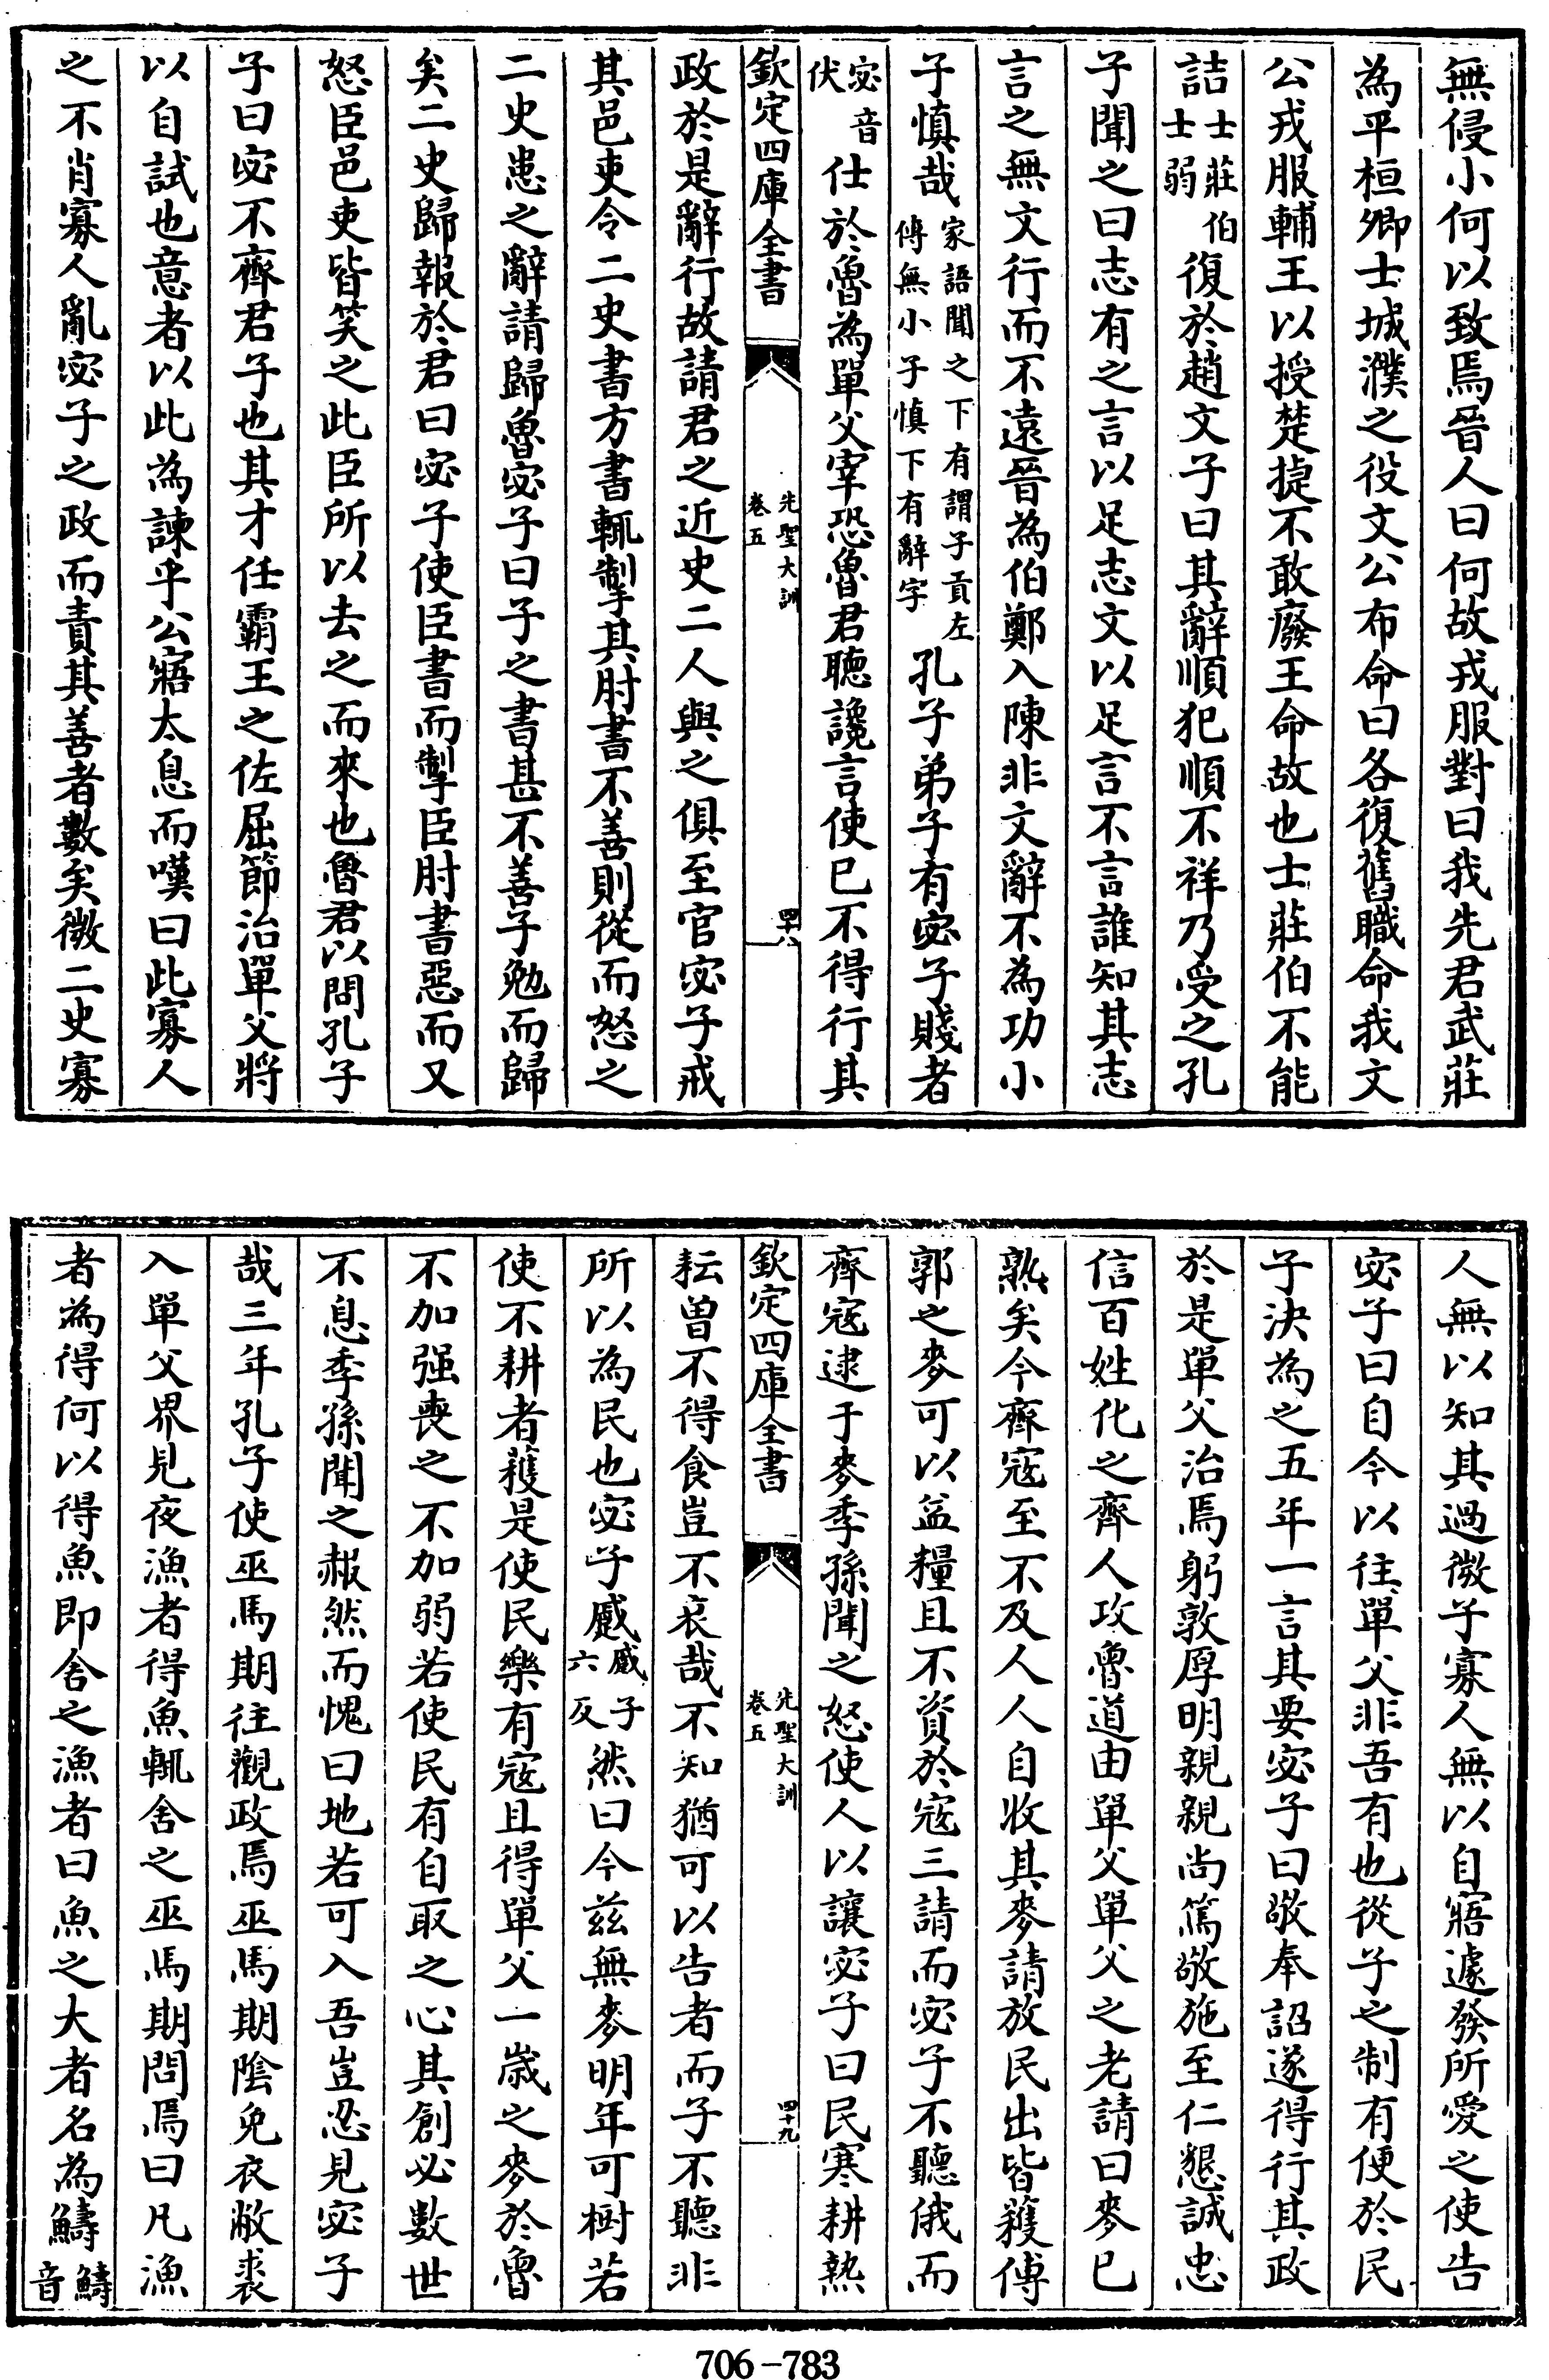 無侵小何以致焉晉人曰何故戎服對曰我先君武莊
為平桓卿士城濮之役文公布命曰各復舊職命我文
公戎服輔王以授楚捷不敢廢王命故也士莊伯不能
詰士莊伯士弱復於趙文子曰其辭順犯順不祥乃受之孔
子聞之曰志有之言以足志文以足言不言誰知其志
言之無文行而不遠晉為伯鄭入陳非文辭不為功小
子慎哉家語聞之下有謂子貢左傳無小子慎下有辭字孔子弟子有宓子賤者
宓音伏仕於魯為單父宰恐魯君聽讒言使已不得行其
欽定四庫全書 先聖大訓 卷五 四十八
政於是辭行故請君之近史二人與之俱至官宓子戒
其邑吏令二史書方書輒掣其肘書不善則從而怒之
二史患之辭請歸魯宓子曰子之書甚不善子勉而歸
矣二史歸報於君曰宓子使臣書而掣臣肘書惡而又
怒臣邑吏皆笑之此臣所以去之而來也魯君以問孔子
子曰宓不齊君子也其才任霸王之佐屈節治單父將
以自試也意者以此為諫乎公寤太息而嘆曰此寡人
之不肖寡人亂宓子之政而責其善者數矣微二史寡
人無以知其過微子寡人無以自寤遽發所愛之使告
宓子曰自今以往單父非吾有也從子之制有便於民
子決為之五年一言其要宓子曰敬奉詔遂得行其政
於是單父治焉躬敦厚明親親尚篤敬施至仁懇誠忠
信百姓化之齊人攻魯道由單父單父之老請曰麥已
熟矣今齊寇至不及人人自收其麥請放民出皆穫傅
郭之麥可以益糧且不資於寇三請而宓子不聽俄而
齊寇逮于麥季孫聞之怒使人以讓宓子曰民寒耕熱
欽定四庫全書 先聖大訓 卷五 四十九
耘曽不得食豈不哀哉不知猶可以告者而子不聽非
所以為民也宓子蹙蹙子六反然曰今兹無麥明年可樹若
使不耕者穫是使民樂有寇且得單父一歲之麥於魯
不加强喪之不加弱若使民有自取之心其創必數世
不息季孫聞之赧然而愧曰地若可入吾豈忍見宓子
哉三年孔子使巫馬期往觀政焉巫馬期隂免衣敝裘
入單父界見夜漁者得魚輒舍之巫馬期問焉曰凡漁
者為得何以得魚即舍之漁者曰魚之大者名為鱣鱣音
706-783